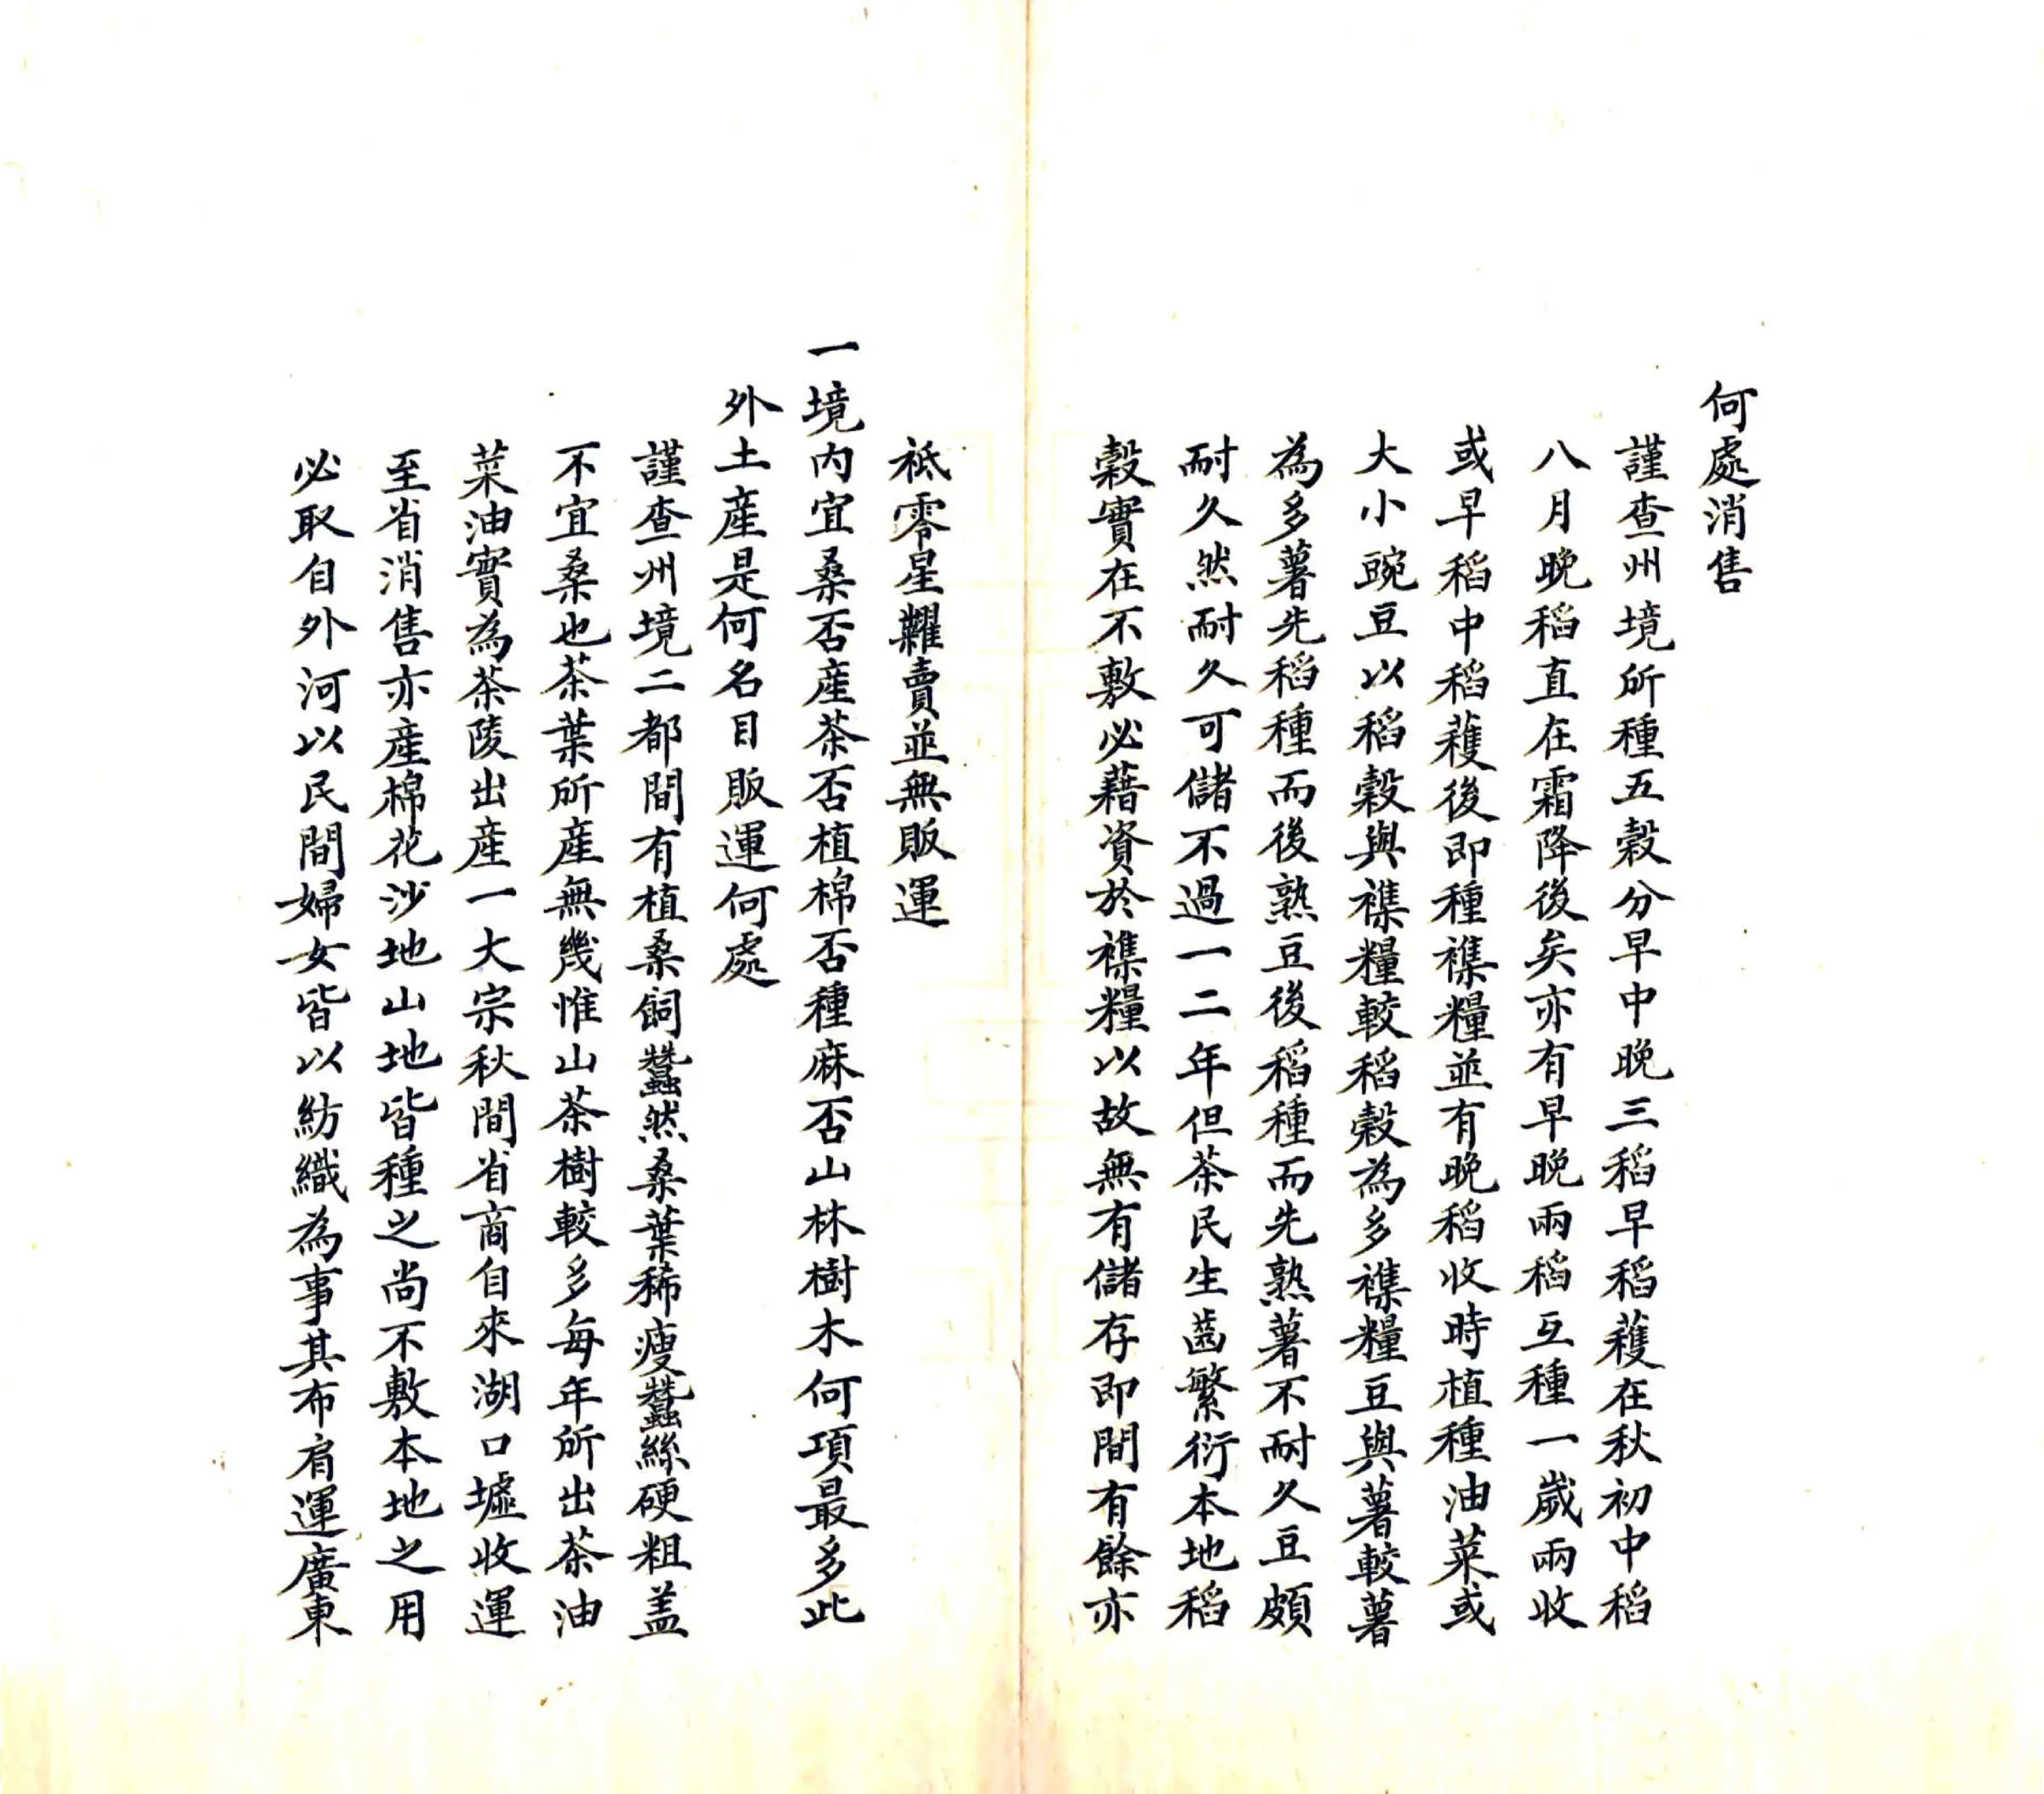 何處消售
謹查州境所種五穀分早中晚三稻早稻穫在秋初中稻
八月晚稻直在霜降後矣亦有早晚兩稻互種一歲兩收
或早稻中稻穫後即種襍糧並有晚稻收時植種油菜或
大小豌豆以稻穀與襍糧較稻穀為多襍糧豆與薯較薯
為多薯先稻種而後熟豆後稻種而先熟薯不耐久豆頗
耐久然耐久可儲不過一二年但茶民生齒繁衍本地稻
穀實在不敷必藉資於襍糧以故無有儲存即間有餘亦
祗零星糶賣並無販運
一境內宜桑否産茶否植棉否種麻否山林樹木何項最多此
外土産是何名目販運何處
謹查州境二都間有植桑飼蠶然桑葉稀瘦蠶絲硬粗盖
不宜桑也茶葉所産無幾惟山茶樹較多每年所出茶油
菜油實為茶陵出産一大宗秋間省商自來湖口墟收運
至省消售亦産棉花沙地山地皆種之尚不敷本地之用
必取自外河以民間婦女皆以紡織為事其布肩運廣東